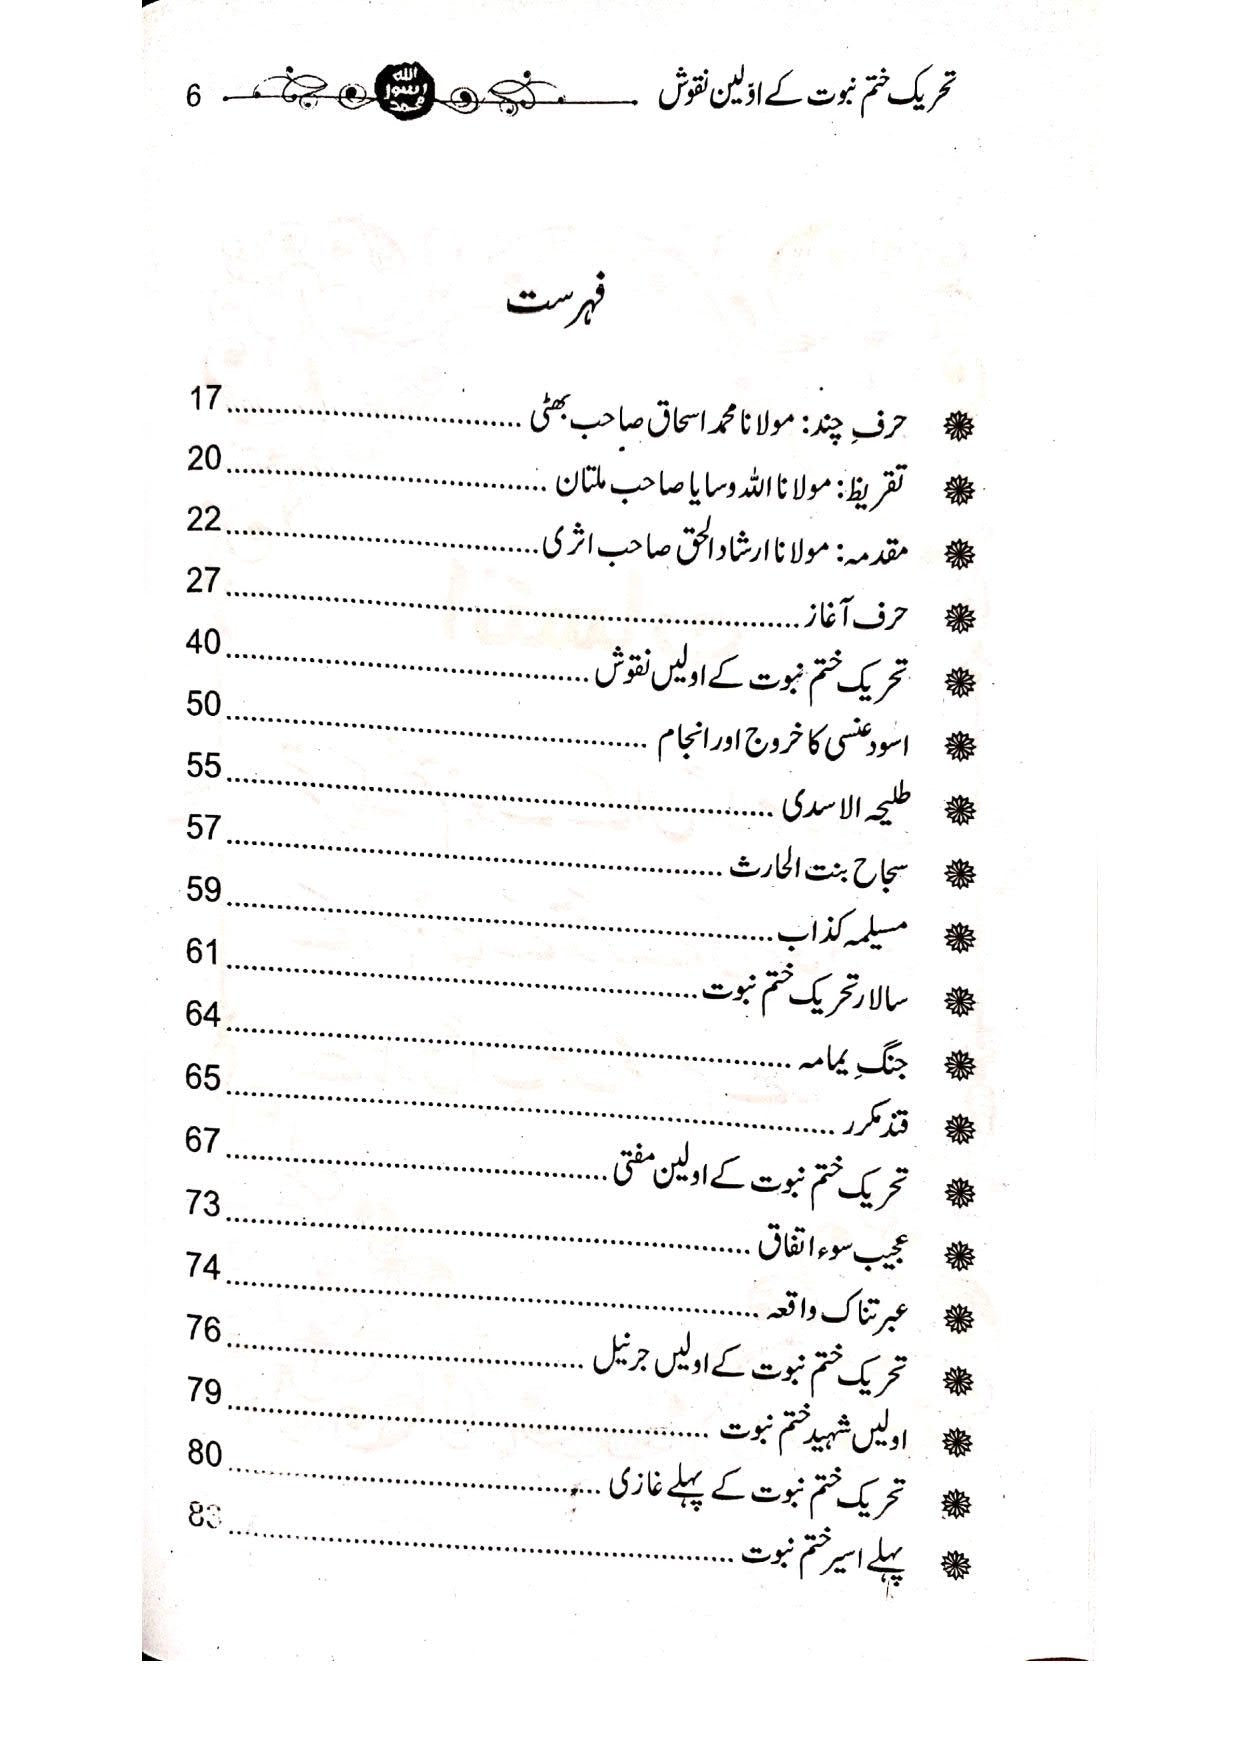 تحریک ختم نبوت کے اوّلین نقوش 6
الله
رسول
محمد
فہرست
حرفِ چند: مولانا محمد اسحاق صاحب بھٹی ........ 17
تقریظ: مولانا اللہ وسایا صاحب ملتان ........ 20
مقدمہ: مولانا ارشاد الحق صاحب اثری ........ 22
حرف آغاز ........ 27
تحریک ختم نبوت کے اولیں نقوش ........ 40
اسود عنسی کا خروج اور انجام ........ 50
طلیحہ الاسدی ........ 55
سجاح بنت الحارث ........ 57
مسیلمہ کذاب ........ 59
سالار تحریک ختم نبوت ........ 61
جنگِ یمامہ ........ 64
قند مکرر ........ 65
تحریک ختم نبوت کے اولین مفتی ........ 67
عجیب سوء اتفاق ........ 73
عبرتناک واقعہ ........ 74
تحریک ختم نبوت کے اولیں جرنیل ........ 76
اولیں شہید ختم نبوت ........ 79
تحریک ختم نبوت کے پہلے غازی ........ 80
پہلے اسیر ختم نبوت ........ 83